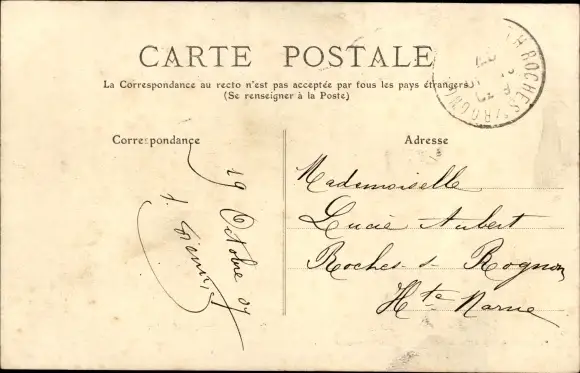 CARTE POSTALE
La Correspondance au recto n'est pas acceptée par tous les pays étrangers.
(Se renseigner à la Poste)
ROCHES S/ ROGNON
Correspondance
19 Octobre 07
Adresse
Mademoiselle
Lucie Aubert
Roches-s-Rognon
Hte Marne